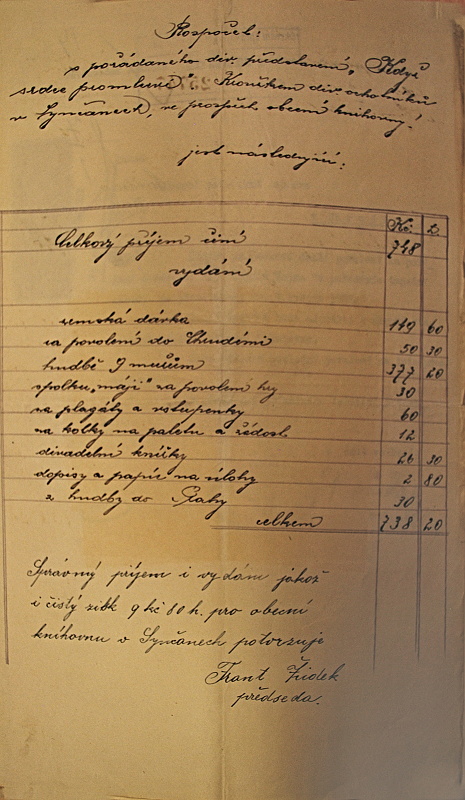 Rospočet:
z pořádaného div. představení, "Když
srdce promluví" Kroužkem div. ochotníků
v Synčanech, ve prospěch obecní knihovny!
jest následující:
Kč. h.
Celkový příjem činí 748
vydání
zemská dávka 149 60
za povolení do Chrudimi 50 30
hudbě 9 mužům 377 20
spolku „máj" za povolení hry 30
za plagáty a vstupenky 60
za kolky na paletu a žádost 12
divadelní knížky 26 30
dopisy a papír na úlohy 2 80
z hudby do Prahy 30
celkem 738 20
Správný příjem i vydání jakož
i čistý zisk 9 kč 80 h. pro obecní
knihovnu v Synčanech potvrzuje
Frant Židek
předseda.